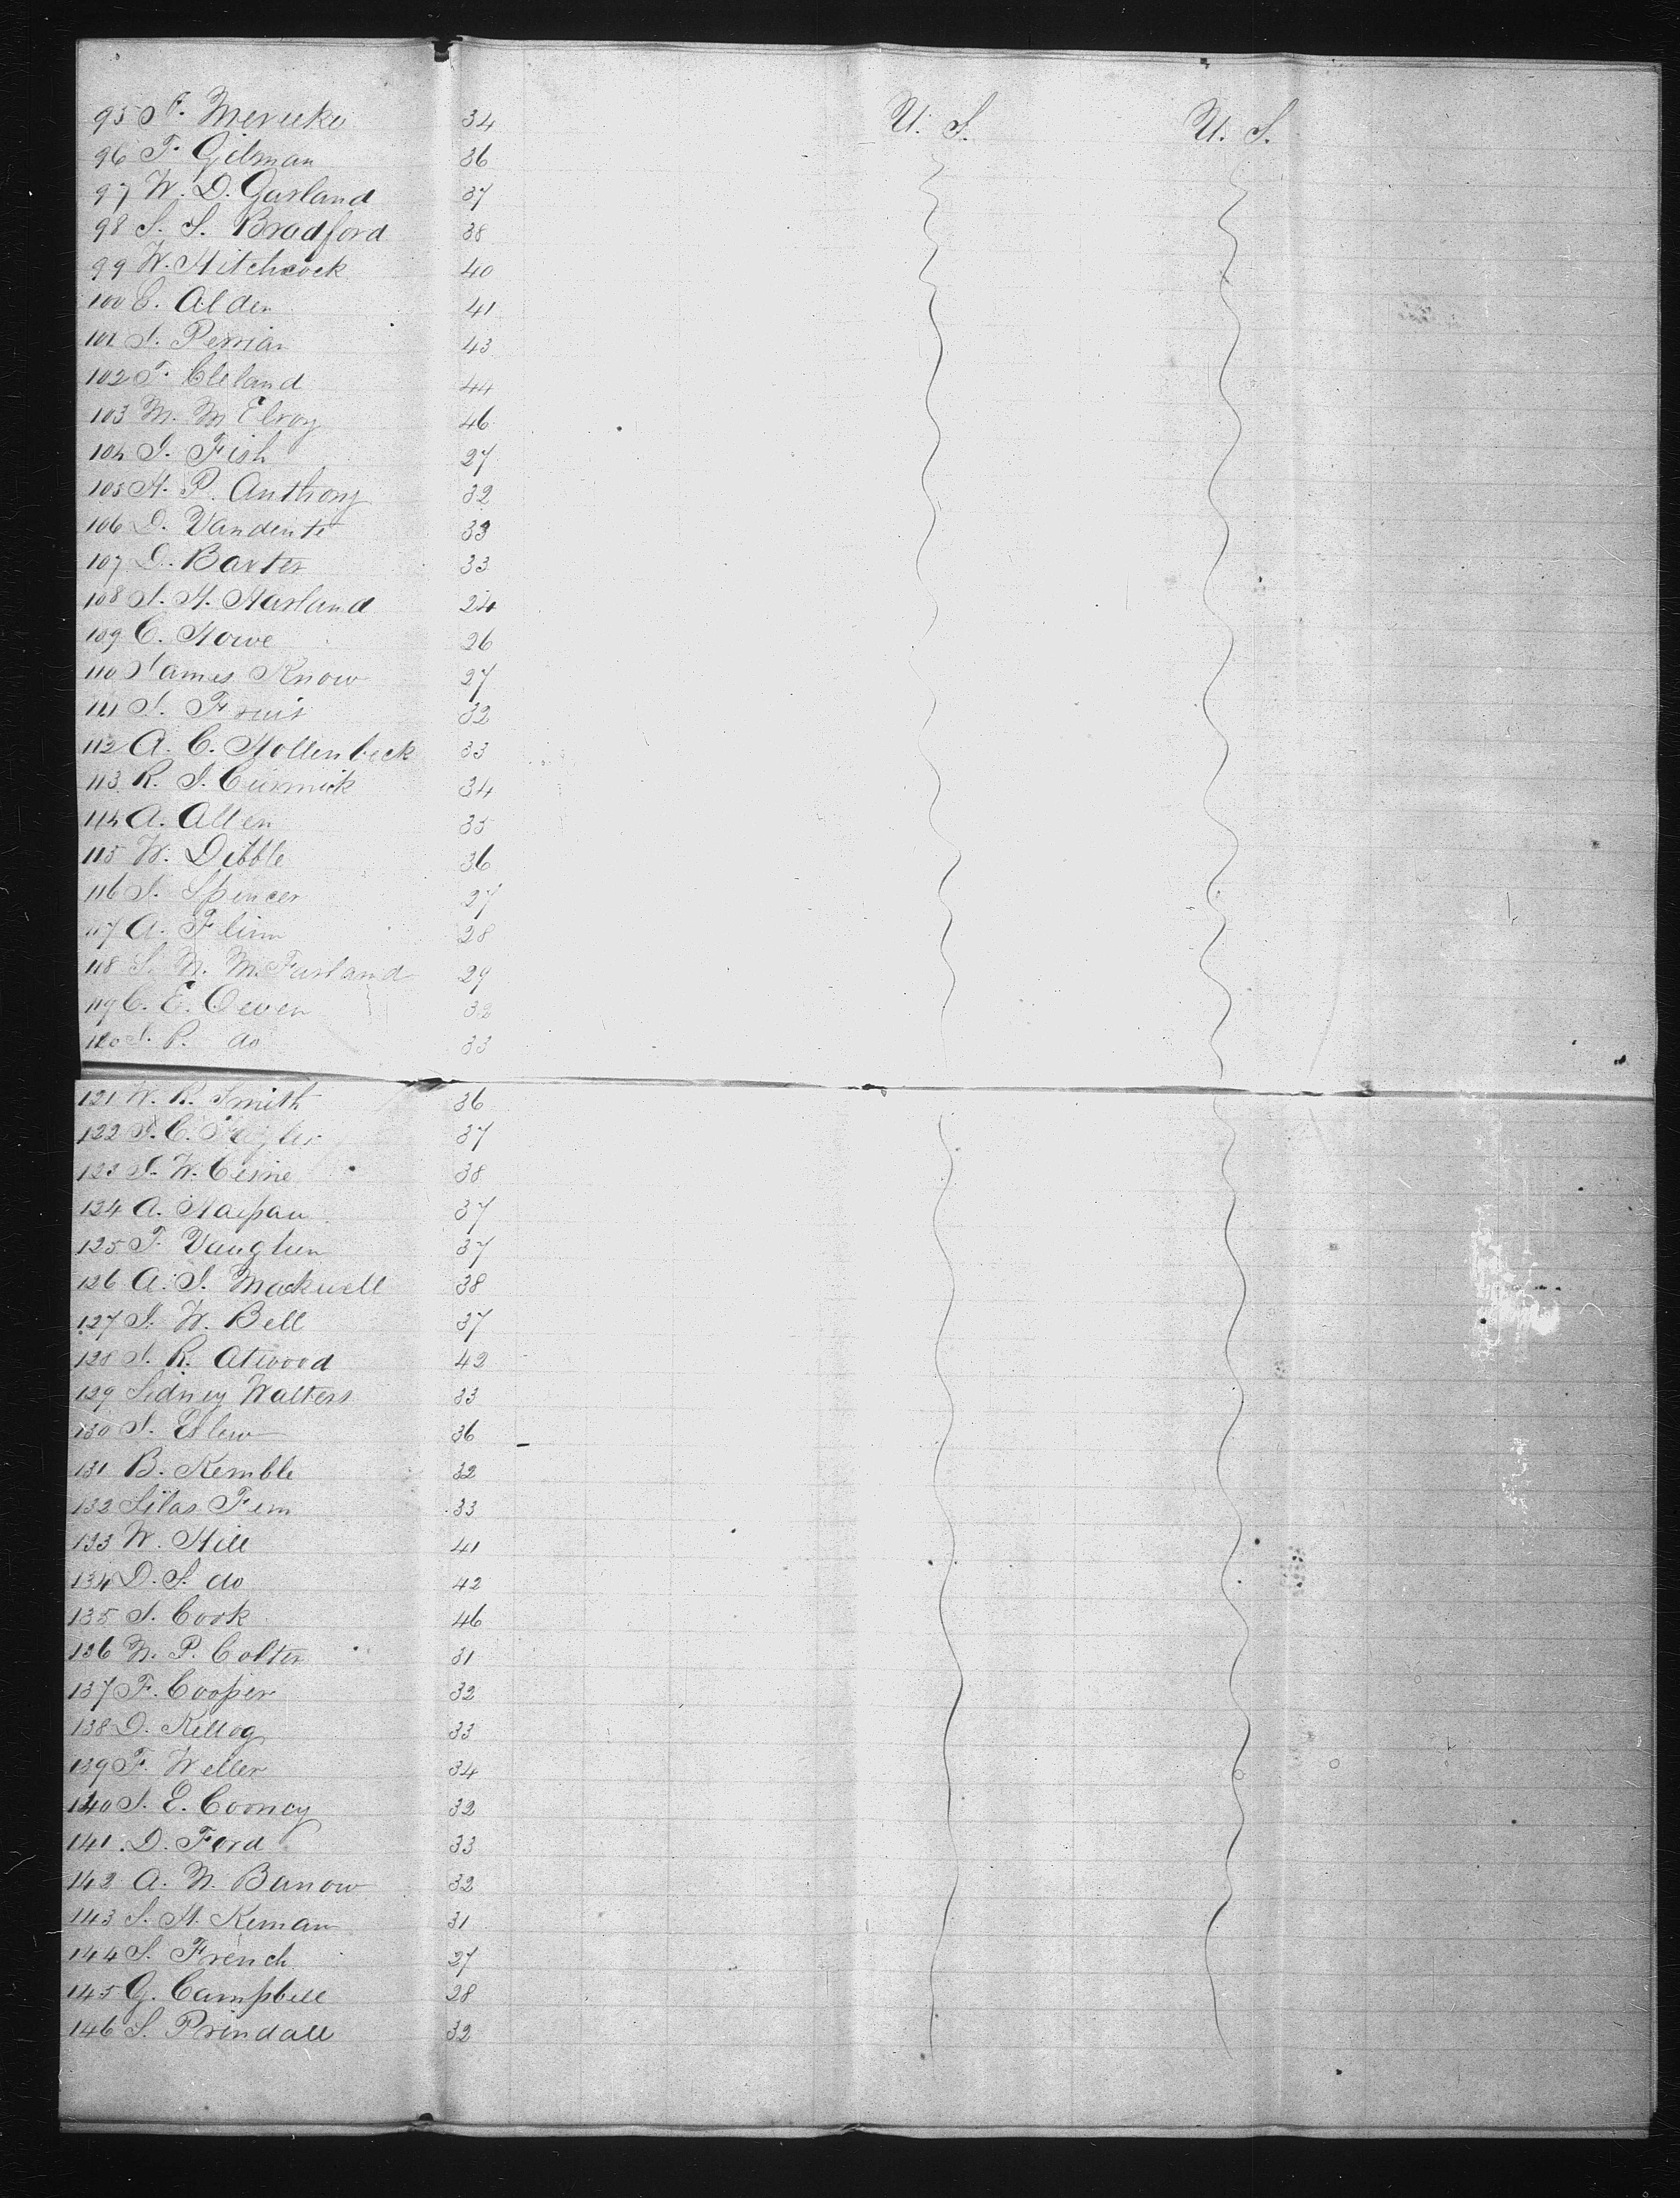 95 F. 34 U. S. U. S.
96 F. Gilman 36
97 W. D. Garland 37
98 S. S. Bradford 38
99 W. Hitchcock 40
100 C. Alden 41
101 J. 43
102 T. Cleland 44
103 M. McElroy 46
104 J. Fish 27
105 H. P. Anthony 32
106 D. 33
107 D. Barter 33
108 J. H. Harland 24
109 C. Howe 26
110 James Know 27
111 J. 32
112 A. C. Hollenbeck 33
113 R. J. 34
114 A. Allen 35
115 W. Dibble 36
116 J. Spencer 27
117 A. Flinn 28
118 S. N. McFarland 29
119 C. E. Owen 32
120 J. P. do 33
121 W. R. Smith 36
122 J. C. 37
123 J. W. 38
124 A. 37
125 T. 37
126 A. J. Mackwell 38
127 J. W. Bell 37
128 J. R. Atwood 42
129 Sidney Walters 33
130 J. 36
131 B. Kemble 32
132 Silas 33
133 W. Hill 41
134 D. S. do 42
135 J. Cook 46
136 N. P. Colter 31
137 F. Cooper 32
138 D. Kellog 33
139 F. Weller 34
140 J. E. Cooney 32
141 D. Ford 33
142 A. N. 32
143 S. H. 31
144 S. French 27
145 G. Campbell 28
146 S. Prindall 32